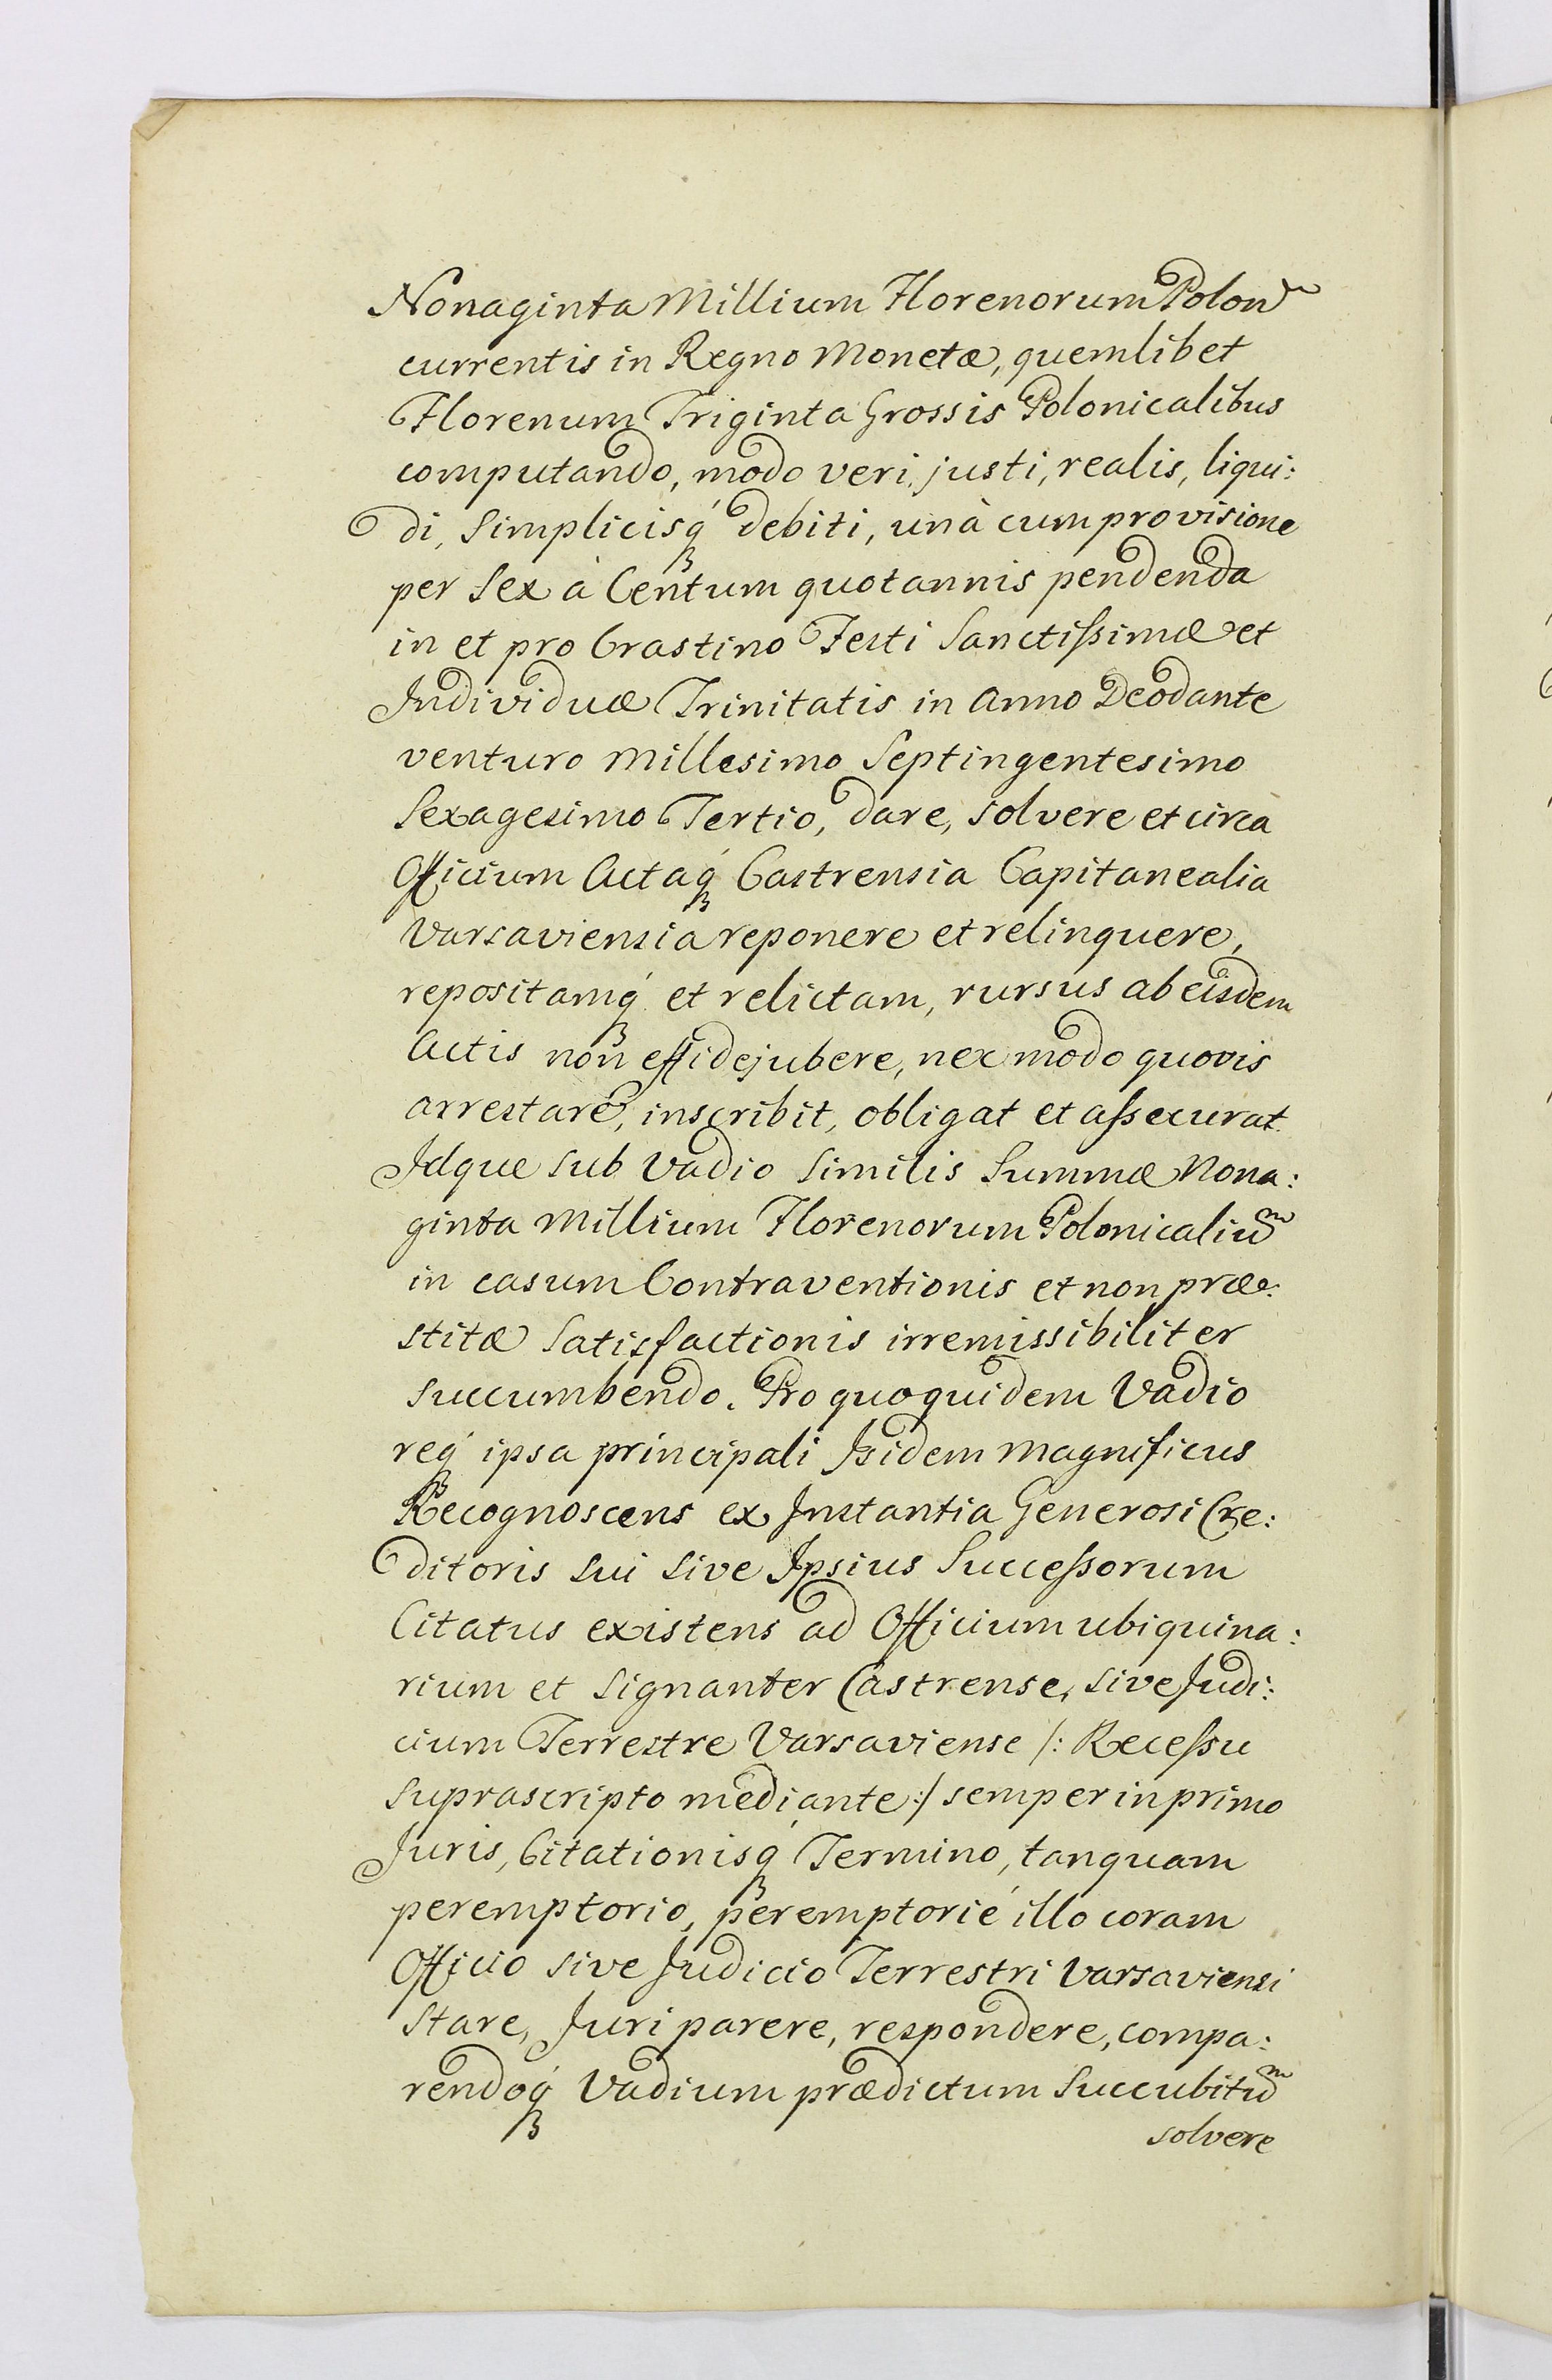 Nonaginta Millium Florenorum Polon
currentis in Regno Monetæ, quemlibet
Florenum Triginta Grossis Polonicalibus
computando, modo veri, justi, realis, liqui:
di, simplicisq́ debiti, unà cum provisione
per sex à Centum quotannis pendenda
in et pro Crastino Festi Sanctissimæ et
Individuæ Trinitatis in Anno Deo dante
venturo Millesimo Septingentesimo
Sexagesimo Tertio, dare, solvere et circa
Officium Actaq́ Castrensia Capitanealia
Varsaviensia reponere et relinquere,
repositamq́ et relictam, rursus ab eisdem
Actis non effidejubere, nec modo quovis
arrestare, inscribit, obligat et assecurat.
Idque sub Vadio similis Summæ Nona:
ginta Millium Florenorum Polonicaliũ
in casum Contraventionis et non præ:
stitæ Satisfactionis irremissibiliter
succumbendo. Pro quo quidem Vadio
req́ ipsa principali Isidem Magnificus
Recognoscens ex Instantia Generosi Cre:
ditoris sui sive Ipsius Successorum
Citatus existens ad Officium ubiquina:
rium et signanter Castrense, sive Judi:
cium Terrestre Varsaviense /: Recessu
suprascripto mediante :/ semper in primo
Juris, Citationisq́ Termino, tanquam
peremptorio, peremptorié illo coram
Officio sive Judicio Terrestri Varsaviensi
stare, Juri parere, respondere, compa:
rendoq́ Vadium prædictum succubitũ
solvere